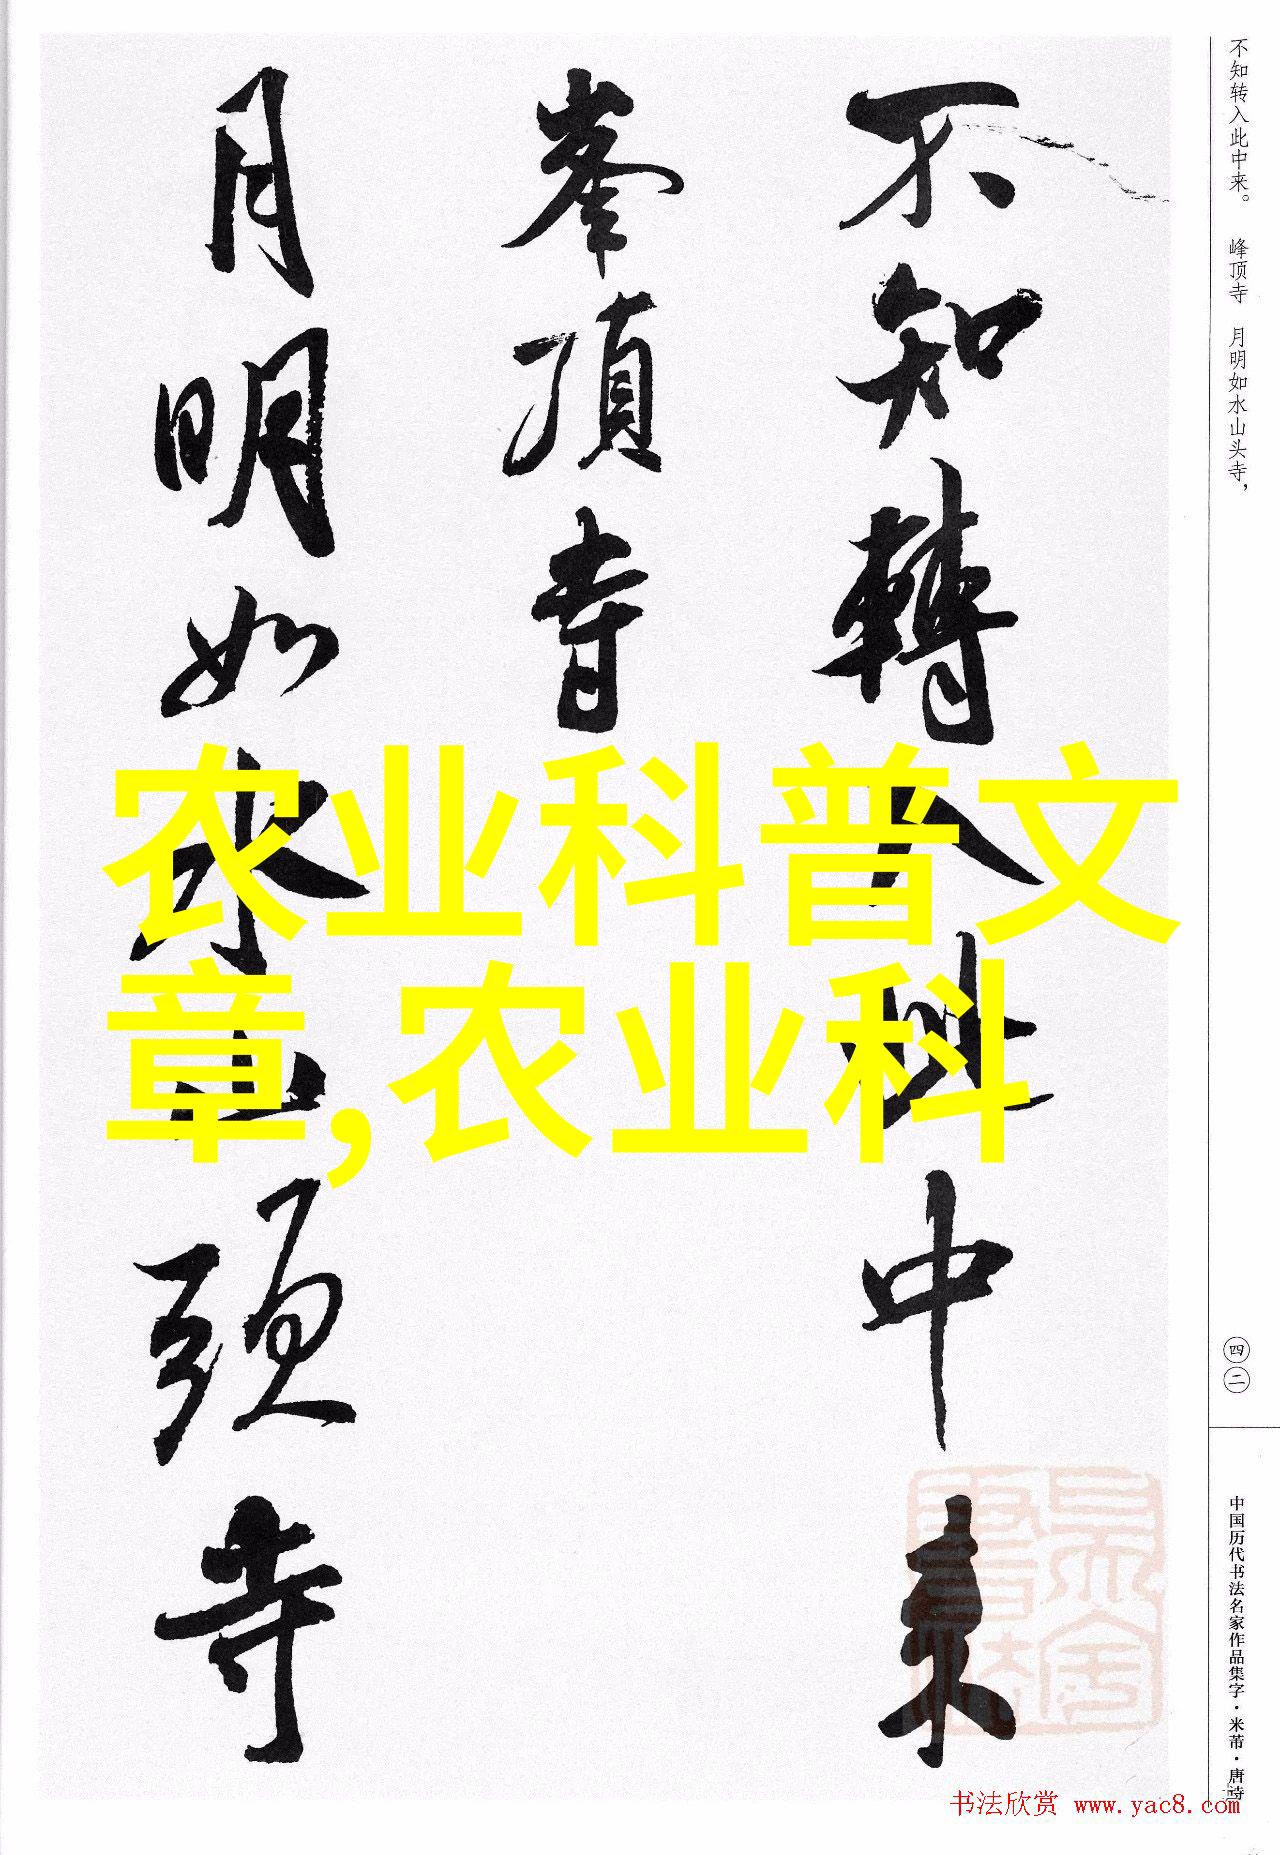 不知轉入此中来
峯頂寺
月明如水山頭寺
农业科普文
章,农业科
不知转入此中来。 峰顶寺 月明如水山头寺，
四二
中国历代书法名家作品集字·米芾·唐诗
书法欣赏 www.yac8.com